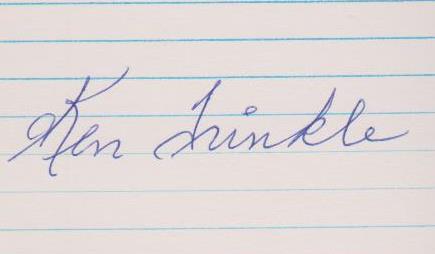 Ken Trinkle